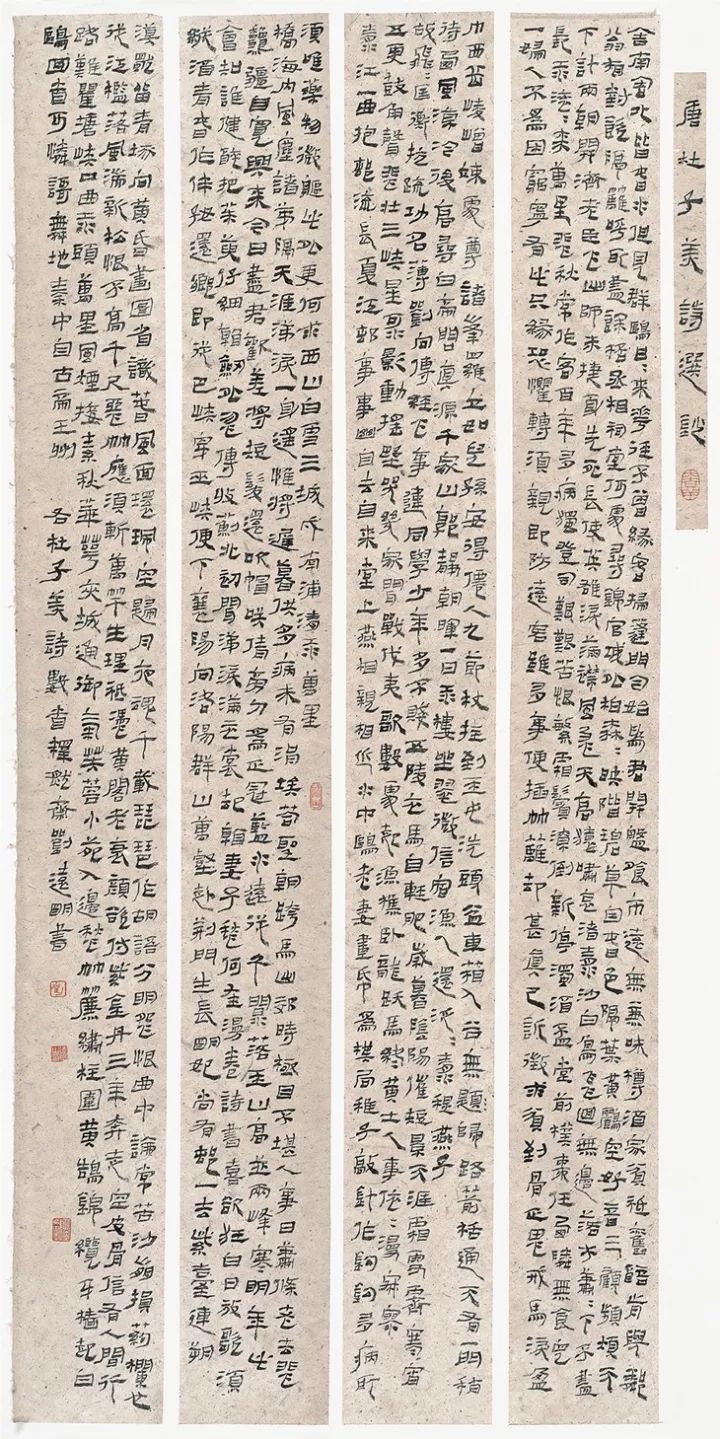 唐杜子美詩選鈔
舍南舍北皆春水但見群鷗日日來花徑不曾緣客掃蓬門今始為君開盤飧市遠無兼味樽酒家貧祇舊醅肯與鄰
翁相對飲隔籬呼取盡餘杯丞相祠堂何處尋錦官城外柏森森映階碧草自春色隔葉黃鸝空好音三顧頻煩天
下計兩朝開濟老臣心出師未捷身先死長使英雄淚滿襟風急天高猿嘯哀渚清沙白鳥飛迴無邊落木蕭蕭下不盡
長江滾滾來萬里悲秋常作客百年多病獨登臺艱難苦恨繁霜鬢潦倒新停濁酒杯堂前撲棗任西鄰無食無兒
一婦人不為困窮寧有此只緣恐懼轉須親即防遠客雖多事便插疏籬卻甚真已訴徵求貧到骨正思戎馬淚盈
巾西岳崚嶒竦處尊諸峰羅立如兒孫安得仙人九節杖拄到玉女洗頭盆車箱入谷無歸路箭栝通天有一門稍
待西風涼冷後高尋白帝問真源千家山郭靜朝暉一日江樓坐翠微信宿漁人還汎汎清秋燕子
故飛飛匡衡抗疏功名薄劉向傳經心事違同學少年多不賤五陵衣馬自輕肥歲暮陰陽催短景天涯霜雪霽寒宵
五更鼓角聲悲壯三峽星河影動搖野哭幾家聞戰伐夷歌數處起漁樵臥龍躍馬終黃土人事依依漫寂寥
清江一曲抱村流長夏江村事事幽自去自來堂上燕相親相近水中鷗老妻畫紙為棋局稚子敲針作釣鉤多病所
須唯藥物微軀此外更何求西山白雪三城戍南浦清江萬里
橋海內風塵諸弟隔天涯涕淚一身遙惟將遲暮供多病未有涓埃答聖朝跨馬出郊時極目不堪人事日蕭條老去悲
秋強自寬興來今日盡君歡羞將短髮還吹帽笑倩旁人為正冠藍水遠從千澗落玉山高並兩峰寒明年此
會知誰健醉把茱萸仔細看劍外忽傳收薊北初聞涕淚滿衣裳卻看妻子愁何在漫卷詩書喜欲狂白日放歌須
縱酒青春作伴好還鄉即從巴峽穿巫峽便下襄陽向洛陽群山萬壑赴荊門生長明妃尚有村一去紫臺連朔
漠獨留青塚向黃昏畫圖省識春風面環珮空歸月夜魂千載琵琶作胡語分明怨恨曲中論常苦沙崩損藥欄也
從江檻落風湍新松恨不高千尺惡竹應須斬萬竿生理祇憑黃閣老衰顏欲付紫金丹三年奔走空皮骨信有人間行
路難瞿塘峽口曲江頭萬里風煙接素秋花萼夾城通御氣芙蓉小苑入邊愁珠簾繡柱圍黃鵠錦纜牙檣起白
鷗回首可憐歌舞地秦中自古帝王州 右杜子美詩數首釋默齋劉遠明書